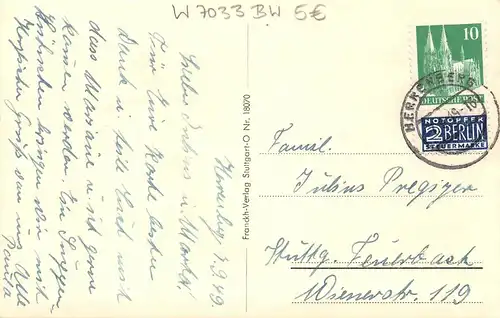 W 7033 BW 5€
10
DEUTSCHE POST
HERRENBERG
NOTOPFER
2 BERLIN
STEUERMARKE
Franckh-Verlag Stuttgart-O Nr. 18070
Herrenberg 4.9.49.
Liebes u.
Für Eure Karte besten
Dank u. teile Euch mit
dass Mariane u. ich gerne
kommen werden. Ein
bringen wir mit
Herzlichen Gruß von uns Alle
Paula
Famil.
Julius Pregizer
Stuttg. Feuerbach
Wienerstr. 119